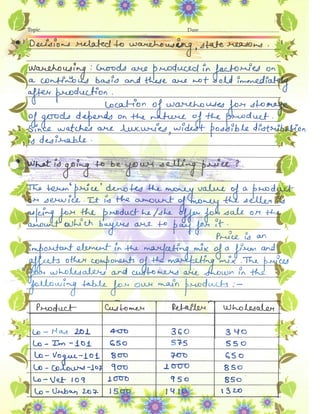 Topic Date
Decisions related to warehousing, state reasons.
Warehousing : Goods are produced in factories on
a continuous basis and these are not sold immediately
after production.
Location of warehouses for storage
of goods depends on the nature of the product.
Since watches are luxuries widest possible distribution
is desirable.
What is going to be your selling price ?
The term 'price' denotes the money value of a product
or service. It is the amount of money the seller is
asking for the product he/she offer for sale or the
amount which buyers are to pay for it.
Price is an
important element in the marketing mix of a firm and
affects other components of the marketing mix. The prices
for wholesalers and customers are shown in the
following table for our main products :-
Product Customer Retailer Wholesaler
Lo- 101 400 360 340
Lo-Im-101 650 575 550
Lo-Vogue-101 800 700 650
Lo-Colours-102 900 1000 850
Lo-Vet 103 1000 950 850
Lo-Urban 207 1500 1410 1320